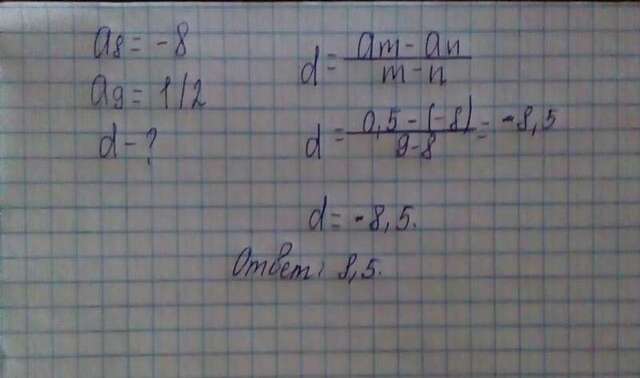 a8 = -8
a9 = 1/2
d - ?
d = am - an / m - n
d = 0,5 - (-8) / 9-8 = -8,5
d = -8,5.
Ответ: 8,5.